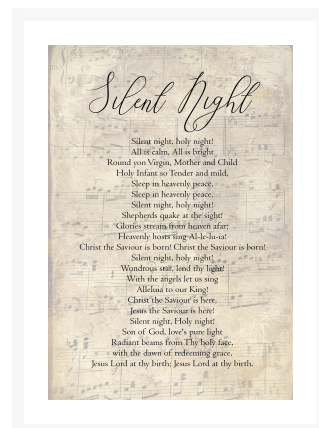 Silent Night
Silent night, holy night!
All is calm, All is bright
Round yon Virgin, Mother and Child
Holy Infant so Tender and mild,
Sleep in heavenly peace,
Sleep in heavenly peace.
Silent night, holy night!
Shepherds quake at the sight!
Glories stream from heaven afar;
Heavenly hosts sing Al-le-lu-ia!
Christ the Saviour is born! Christ the Saviour is born!
Silent night, holy night!
Wondrous star, lend thy light!
With the angels let us sing
Alleluia to our King!
Christ the Saviour is here,
Jesus the Saviour is here!
Silent night, Holy night!
Son of God, love's pure light
Radiant beams from Thy holy face,
with the dawn of redeeming grace,
Jesus Lord at thy birth; Jesus Lord at thy birth.